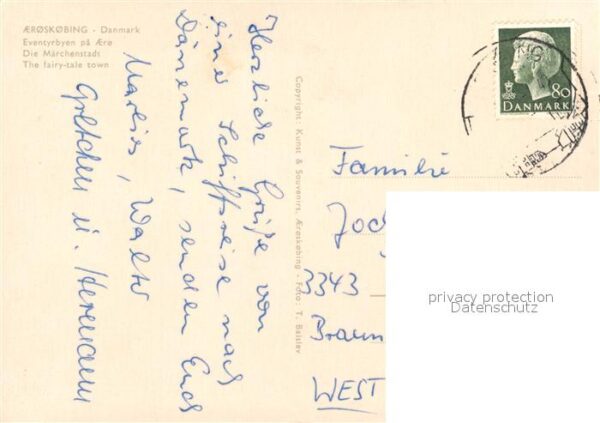 ÆRØSKØBING - Danmark
Eventyrbyen på Ære
Die Märchenstadt
The fairy-tale town
Herzliche Grüße von
einer Schiffsreise nach
Dänemark, senden Euch
Marlies, Walter
Gretchen u. Hermann
Copyright: Kunst & Souvenirs, Ærøskøbing - Foto: T. Balslev
80
DANMARK
Familie
3343
WEST
privacy protection
Datenschutz